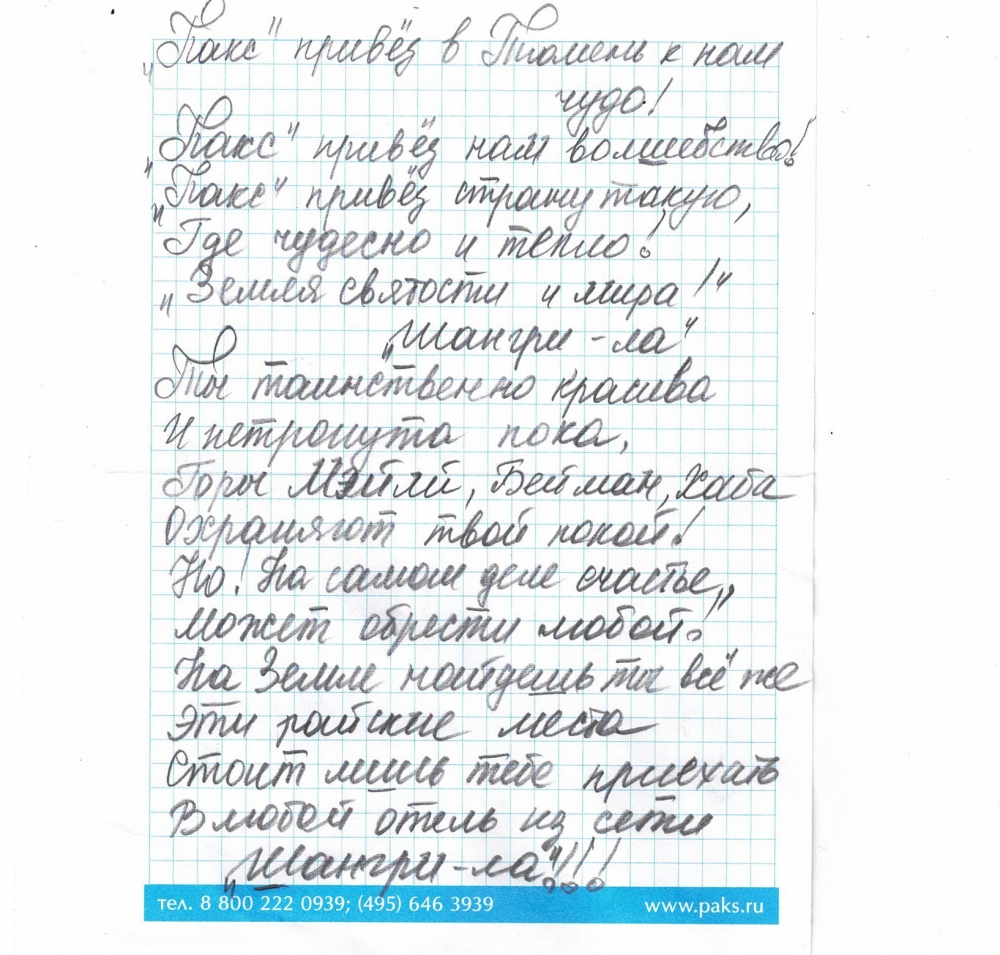 "Пакс" привёз в Тюмень к нам
чудо!
"Пакс" привёз нам волшебство!
"Пакс" привёз страну такую,
"Где чудесно и тепло!
"Земля святости и мира!"
"Шангри-ла"
Ты таинственно красива
И нетронута пока,
Горы Мэйли, Бейман, Хаба
Охраняют твой покой!
Но! На самом деле счастье,,
Может обрести любой!"
На Земле найдешь ты всё же
Эти райские места
Стоит лишь тебе приехать
В любой отель из сети
"Шангри-ла"!!!
тел. 8 800 222 0939; (495) 646 3939
www.paks.ru